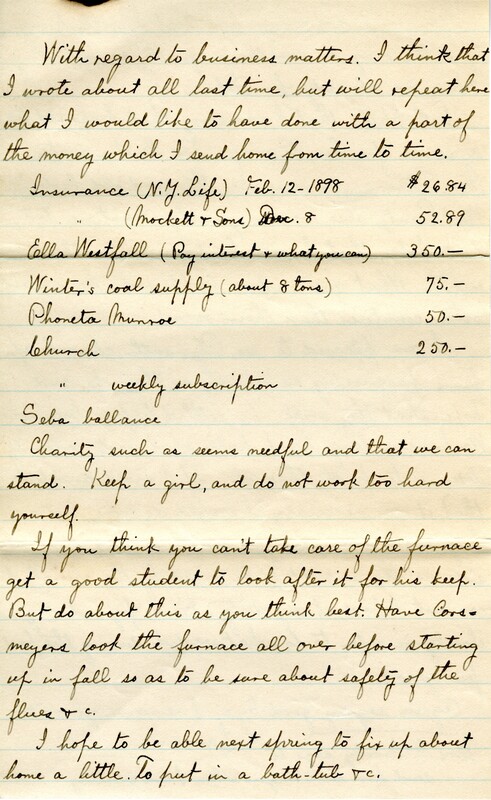 With regard to business matters. I think that
I wrote about all last time, but will repeat here
what I would like to have done with a part of
the money which I send home from time to time.
Insurance (N.Y. Life) Feb. 12-1898 $26.84
" (Mockett & Sons) Dec. 8 52.89
Ella Westfall (Pay interest & what you can) 350.—
Winter's coal supply (about 8 tons) 75.—
Phoneta Munroe 50.—
Church 250.—
" weekly subscription
Seba ballance
Charity such as seems needful and that we can
stand. Keep a girl, and do not work too hard
yourself.
If you think you can't take care of the furnace
get a good student to look after it for his keep.
But do about this as you think best. Have Cors=
meyers look the furnace all over before starting
up in fall so as to be sure about safety of the
flues & c.
I hope to be able next spring to fix up about
home a little. To put in a bath-tub &c.